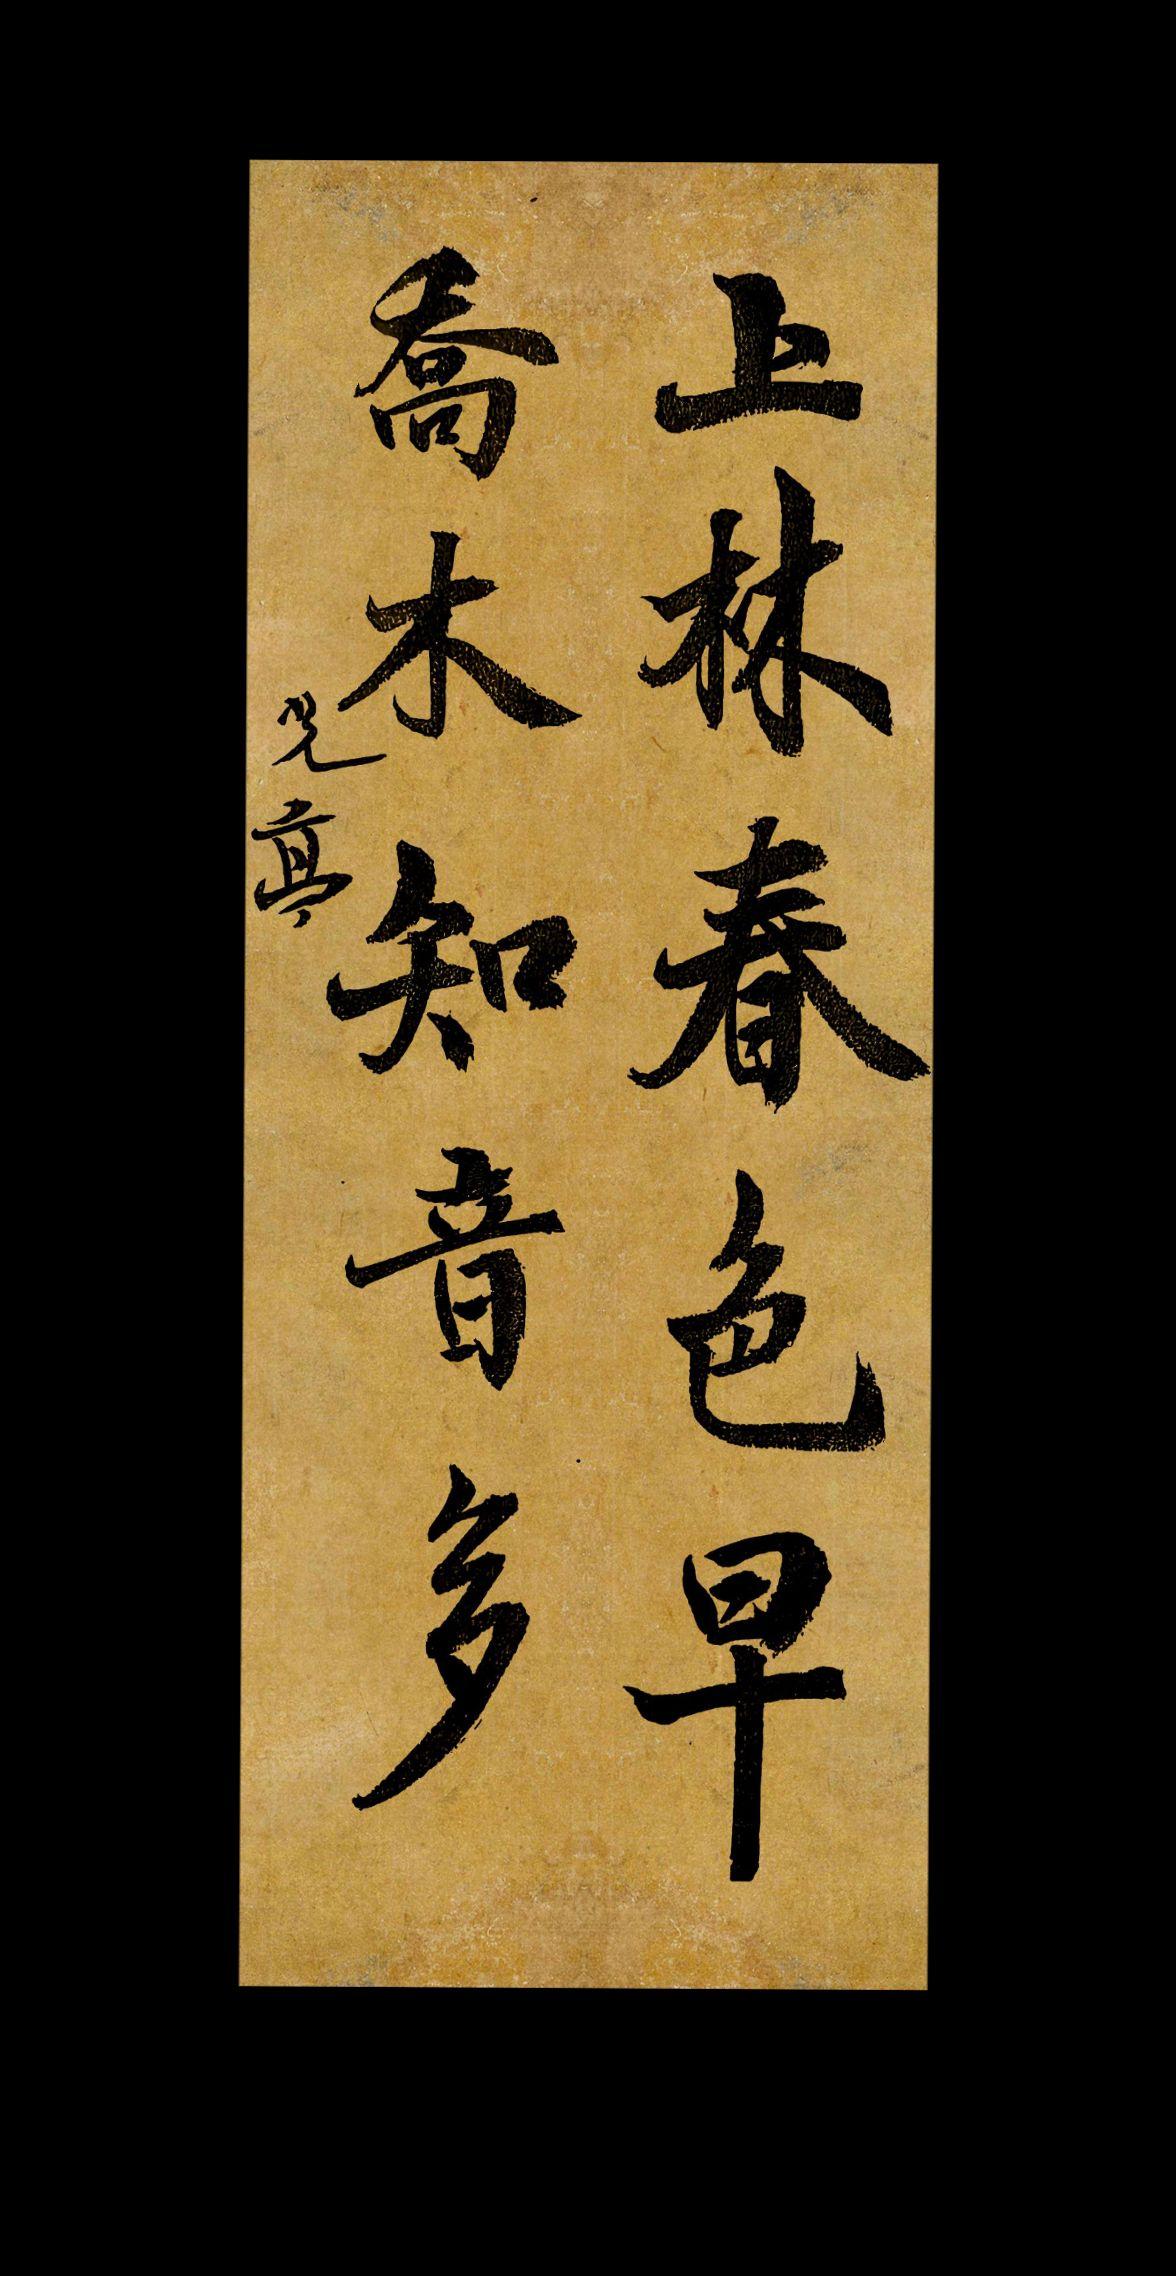 上林春色早
喬木知音多
亭